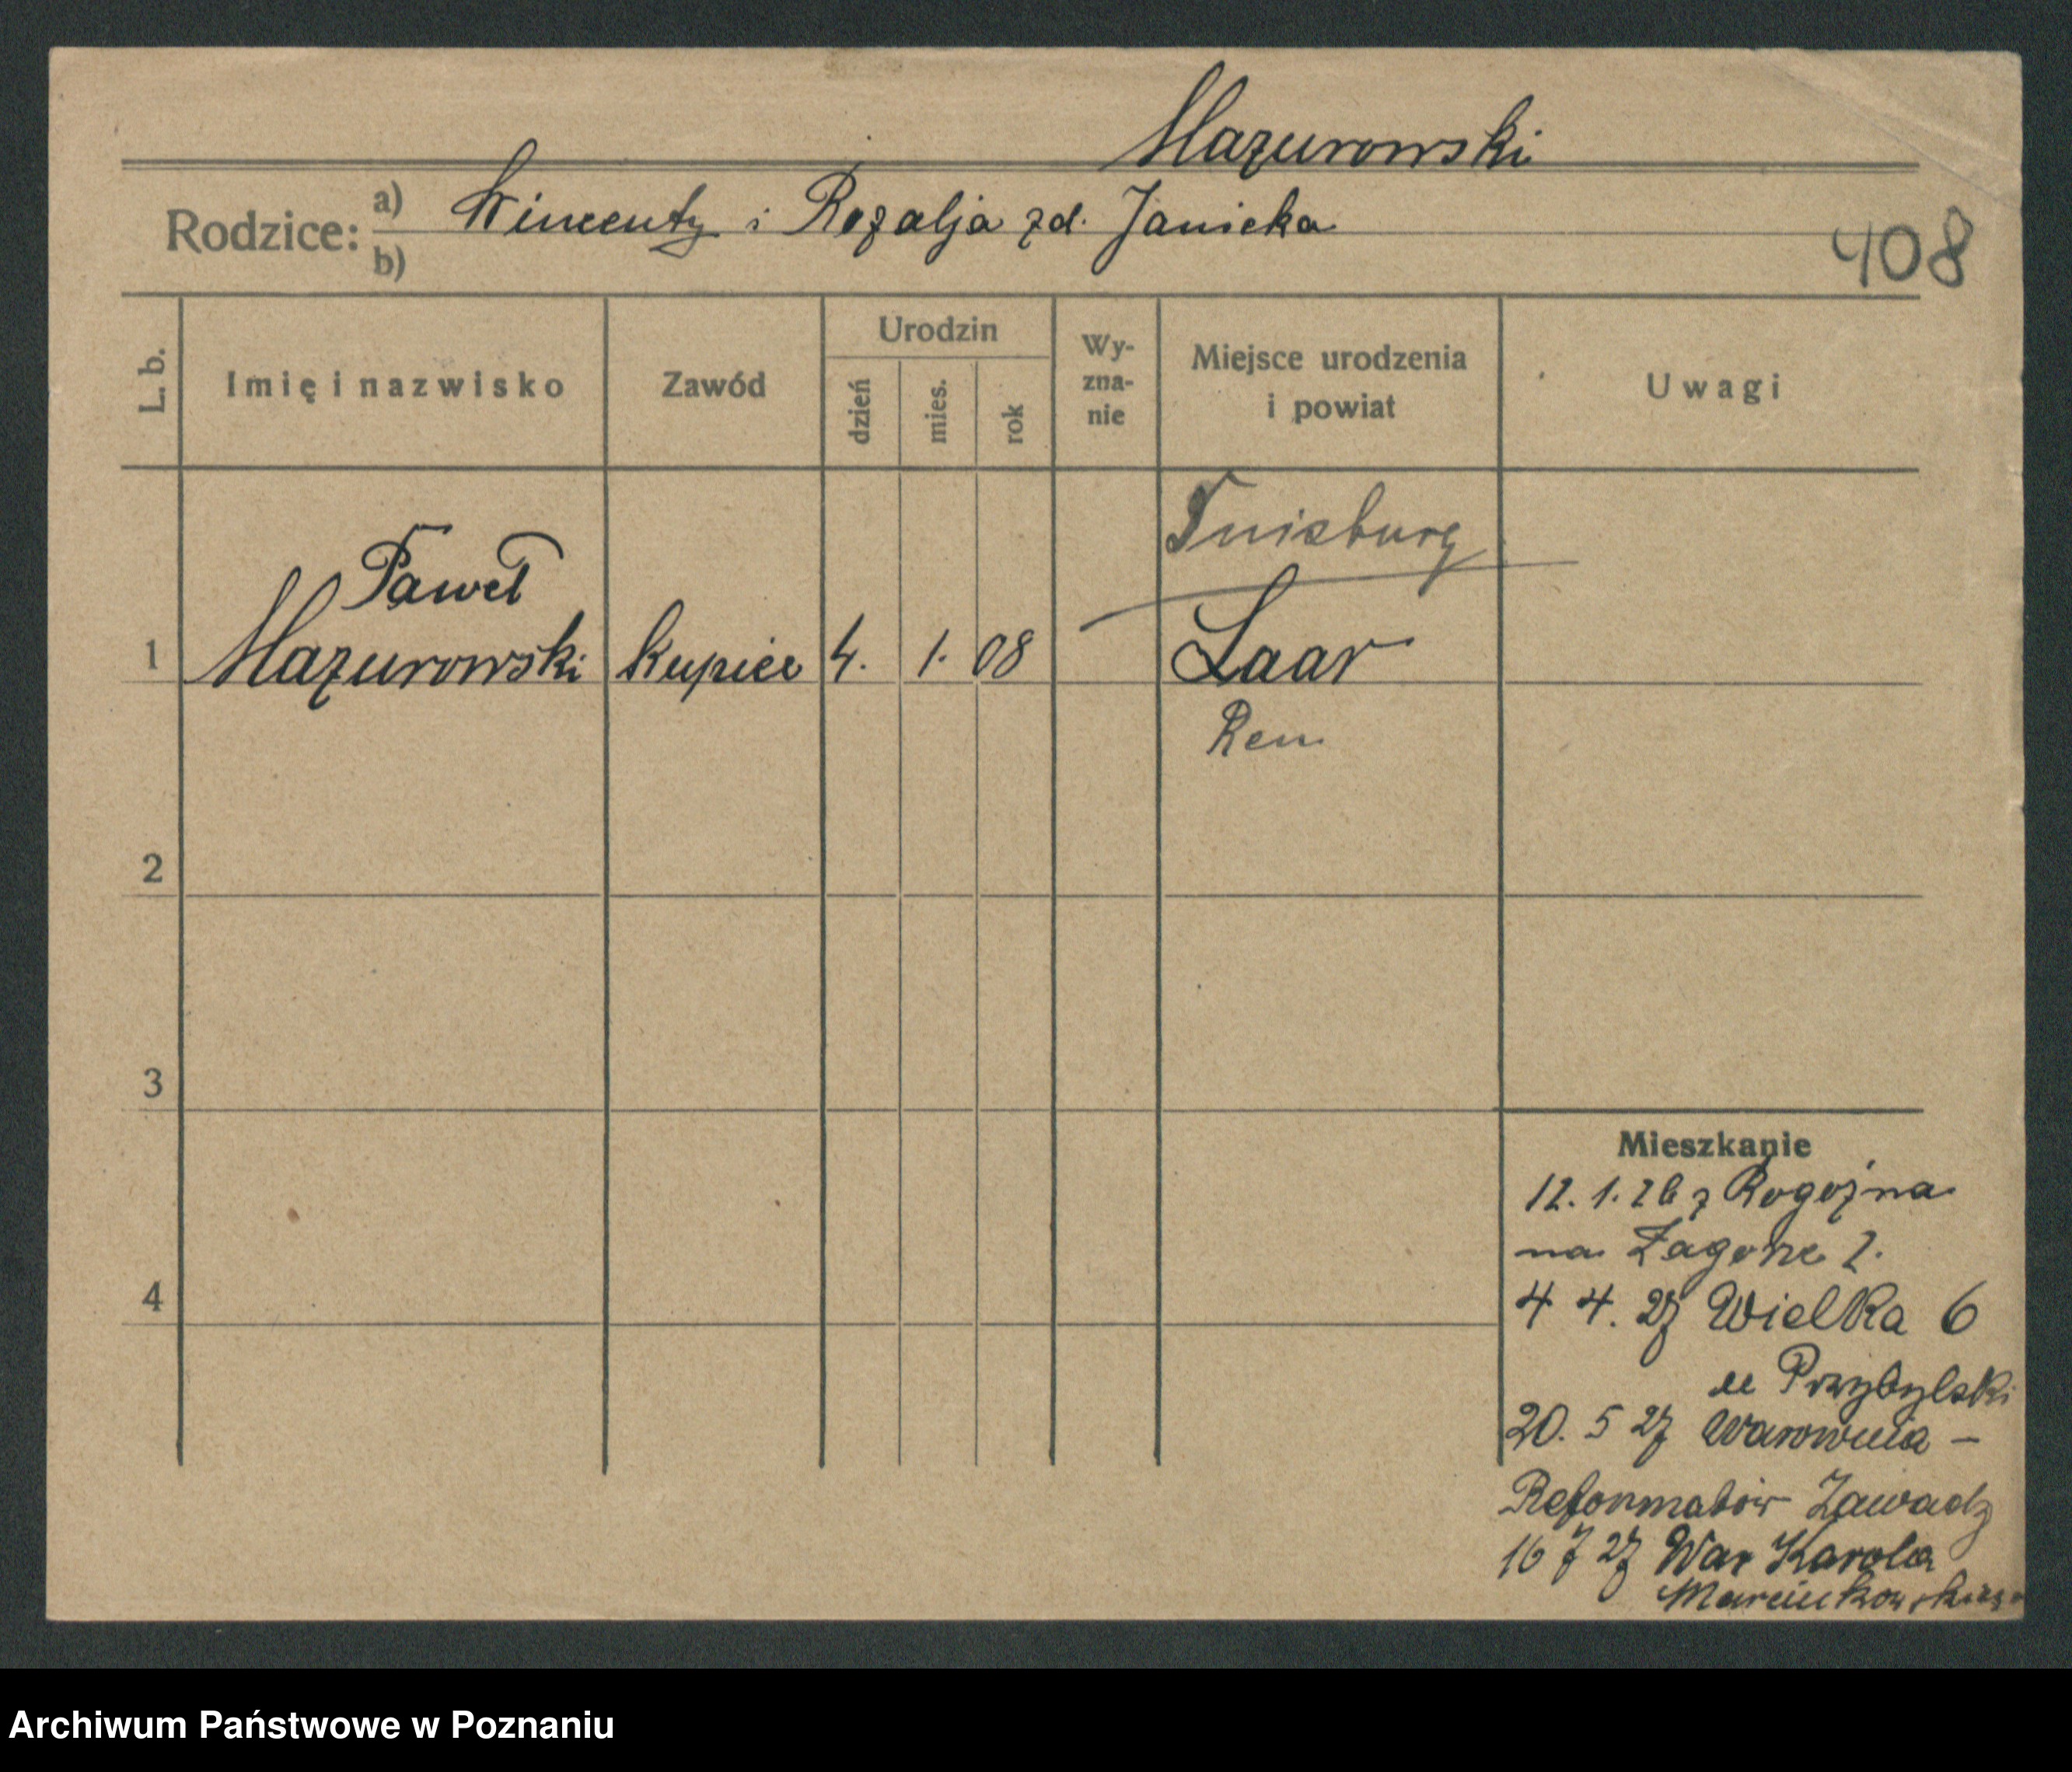 Mazurowski
Rodzice: a) Wincenty i Rozalja zd. Janicka
b)
408
L. b.
Imię i nazwisko
Zawód
Urodzin
dzień
mies.
rok
Wy-
zna-
nie
Miejsce urodzenia
i powiat
Uwagi
Duisburg
Paweł
1 Mazurowski kupiec 4. 1. 08 Laar
2
3
4
Mieszkanie
12. 1. 26 z Rogoźna
na Zagórze 2.
4 4. 27 Wielka 6
u Przybylski
20. 5 27 Warownia –
Reformatów Zawady
16 7 27 War Karola
Marcinkowskiego
Archiwum Państwowe w Poznaniu